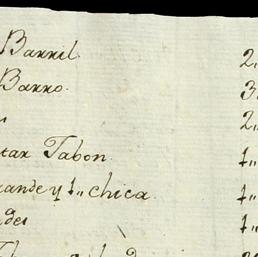 Barril 2,
Barro. 3
2,,
tar Tabon. 1,,
rande y 1,, chica 1,,
des 1,,